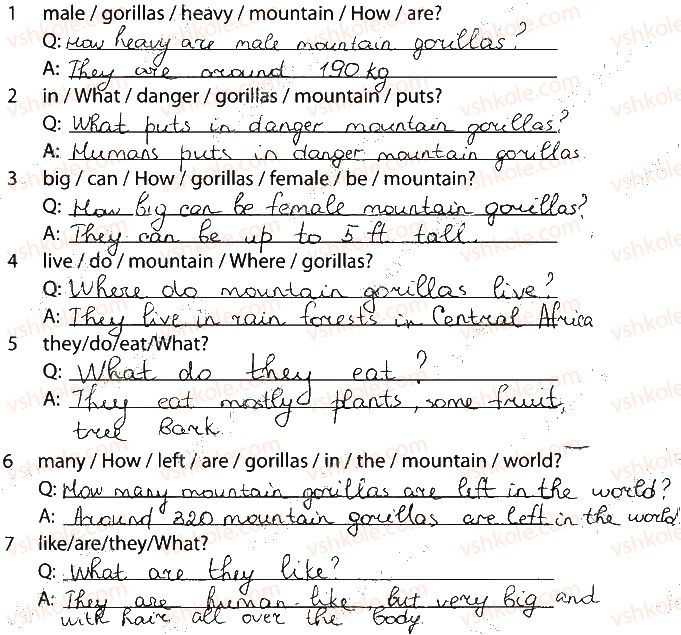 1 male / gorillas / heavy / mountain / How / are?
Q: How heavy are male mountain gorillas?
A: They are around 190 kg
2 in / What / danger / gorillas / mountain / puts?
Q: What puts in danger mountain gorillas?
A: Humans puts in danger mountain gorillas
3 big / can / How / gorillas / female / be / mountain?
Q: How big can be female mountain gorillas?
A: They can be up to 5 ft tall.
4 live / do / mountain / Where / gorillas?
Q: Where do mountain gorillas live?
A: They live in rain forests in Central Africa
5 they/do/eat/What?
Q: What do they eat?
A: They eat mostly plants, some fruit,
tree Bark.
6 many / How / left / are / gorillas / in / the / mountain / world?
Q: How many mountain gorillas are left in the world?
A: Around 320 mountain gorillas are left in the world
7 like/are/they/What?
Q: What are they like?
A: They are human like, but very big and
with hair all over the body.
vshkole.com